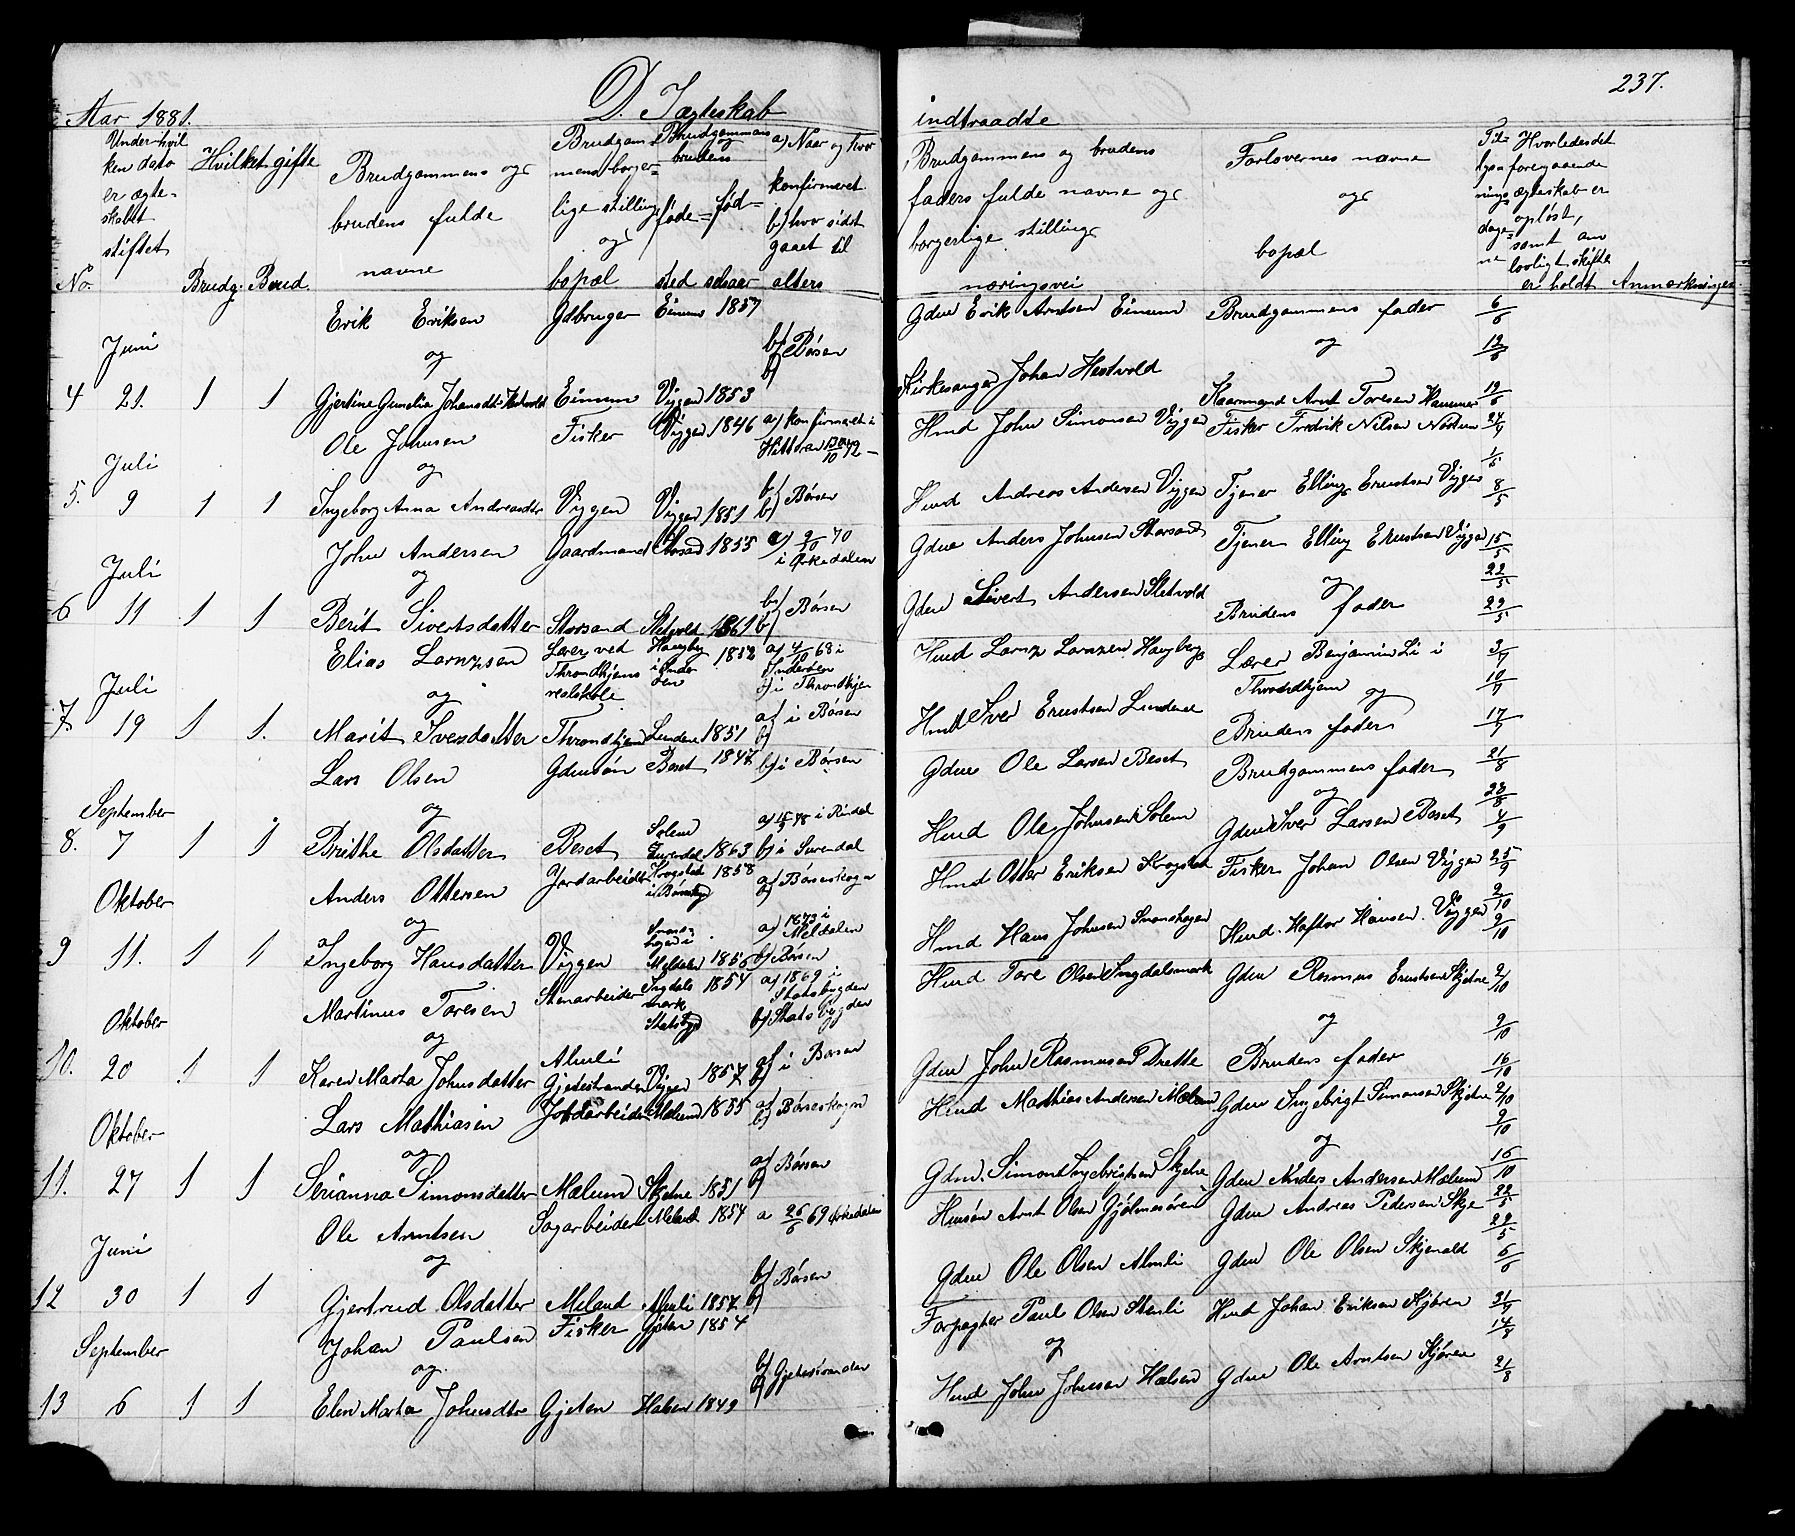 237.
Aar 1881.
D. Jægteskab
indtraadte
Under hvil
ken dato
er ægte-
skabet
stiftet
No.
Hvilket gifte
Brudg. Brud.
Brudgommens og
brudens fulde
navne
Brudgom-
mens borger-
lige stilling
og
bopæl
Brudgommens
og
brudens
føde- fød-
sted selsaar
a) Naar og hvor
konfirmeret
b) hvor sidst
gaaet til
alters
Brudgommens og brudens
faders fulde navne og
borgerlige stilling
næringsvei
Forlovernes navne
og
bopæl
lysnings
dage
Hvorledes det
foregaaende
ægteskab er
opløst,
samt om
lovligt skifte
er holdt
Anmærkninger
Erik Eriksen Gdbruger Einum 1857
Gdm Erik Arntsen Einum Brudgommens fader 6/6
Juni
og
b) Børsen
og
12/6
4 21. 1 1 Gjertine Gunelia Johansdt. Hestvold Einum Viggen 1853
Kirkesanger Johan Hestvold
Kaarmand Arnt Toresen Hammer 19/6
Ole Johnsen Fisker Viggen 1846 a) konfirmeret i
Hitteren
Hmd John Simonsen Viggen Fisker Fredrik Nilsen
Juli
og
5. 9 1 1 Ingeborg Anna Andreasdtr Viggen Viggen 1851 b) Børsen
Hmd Andreas Andersen Viggen Tjener Elling Erntsen Viggen 8/5
John Andersen Gaardmand Storsand 1855 a) 2/10 70
i Orkedalen
Gdm Anders Johnsen Storsand Tjener Elling Erntsen Viggen 15/5
Juli
og
og
22/5
6 11 1 1 Berit Sivertsdatter Storsand Sletvold 1861 b) Børsen
Gdm Sivert Andersen Sletvold Brudens fader 29/5
Elias Lornzsen Lærer ved
Throndhjems
realskole
Haugberg
i Inder
øen
1852 a) 4/10 68 i
Inderøen
b) i Throndhjem
Hmd Lornz Lornzen Haugberg Lærer Benjamin Li i
Throndhjem og
Juli
og
3/7
10/7
7. 19 1 1. Marit Iversdatter Throndhjem Lindene 1851 a) i Børsen
b)
Hmd Iver Erntsen Lindene Brudens fader 17/7
Lars Olsen Gdmsøn Beset 1847 b) i Børsen
Gdm Ole Larsen Beset Brudgommens fader 21/8
September
og
og
28/8
8. 7 1 1 Brithe Olsdatter Beset Solem
Surendal 1863
i Rindal
b) i Surendal
Hmd Ole Johnsen Solem Gdm Iver Larsen Beset 4/9
Anders Ottersen Jordarbeider Krogstad
1858
a) Børseskogn
b)
Hmd Otter Eriksen Krogstad Fisker Johan Olsen Viggen 25/9
Oktober
og
2/10
9 11. 1 1 Ingeborg Hansdatter Viggen
Meldalen 1856
a) 1873 i
Meldalen
b) Børsen
Hmd Hans Johnsen Hmd. Haftor Hansen. Viggen 9/10
Martinus Toresen Stenarbeider Ingdals
mark
Statsbygd
1854 a) 1869 i
Statsbygden
b) Statsbygden
Hmd Tore Olsen Ingdalsmark Gdm Rasmus Erntsen Skjetne 2/10
Oktober
og
og
9/10
10. 20 1 1 Karen Marta Johnsdatter Almli
Gjetestranden Viggen 1857 a) i Børsen
b)
Gdm John Rasmussen Brudens fader 16/10
Lars Mathiasen Jordarbeider Mælum 1855 a) Børseskogn
b)
Hmd Mathias Andersen Mælum Gdm Ingebrigt Simonsen Skjetne 2/10
Oktober
og
og
9/10
11. 27 1 1 Serianna Simonsdatter Mælum Skjetne 1851 a) Børsen
b)
Gdm. Simon Ingebrigtsen Skjetne Gdm Anders Andersen Mælum 16/10
Ole Arntsen Sagarbeider Meland 1854 a 26/6 69 Orkedalen
Hmsøn Arnt Olsen Gjølmesøren Gdm Andreas Pedersen Skje 22/5
Juni
og
29/5
12 30 1 1 Gjertrud Olsdatter Meland Almli 1857 b) Børsen
b)
Gdm Ole Olsen Almli Gdm Ole Olsen Skjenald 6/6
Johan Paulsen Fisker Gjeten 1854
Forpagter Paul Olsen Stenli Hmd Johan Eriksen Kjøren 31/7
September
og.
og
14/8
13 6 1 1 Elen Marta Johnsdtr Gjeten Halsen 1849 b) Gjetestranden
b)
Hmd John Johnsen Halsen Gdm Ole Arntsen Kjøren 21/8